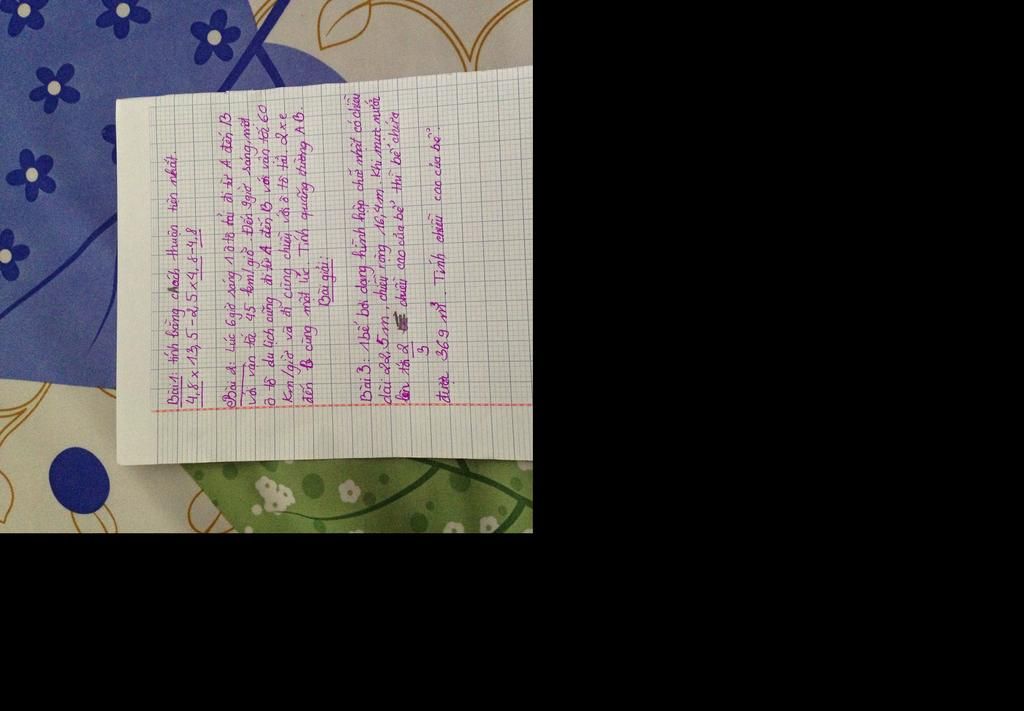 Bài 1: tính bằng cách thuận tiện nhất.
4,8 x 13,5 - 2,5 x 4,8 - 4,8
Bài 2: Lúc 6 giờ sáng 1 ô tô tải đi từ A đến B
với vận tốc 45 km/giờ. Đến 9 giờ sáng, một
ô tô du lịch cũng đi từ A đến B với vận tốc 60
km/giờ và đi cùng chiều với ô tô tải. 2 xe
đến B cùng một lúc. Tính quãng đường AB.
Bài giải:
Bài 3: 1 bể bơi dạng hình hộp chữ nhật có chiều
dài 22,5m, chiều rộng 16,4m. Khi mực nước
lên tới 2/3 chiều cao của bể thì bể chứa
được 369 m³. Tính chiều cao của bể.